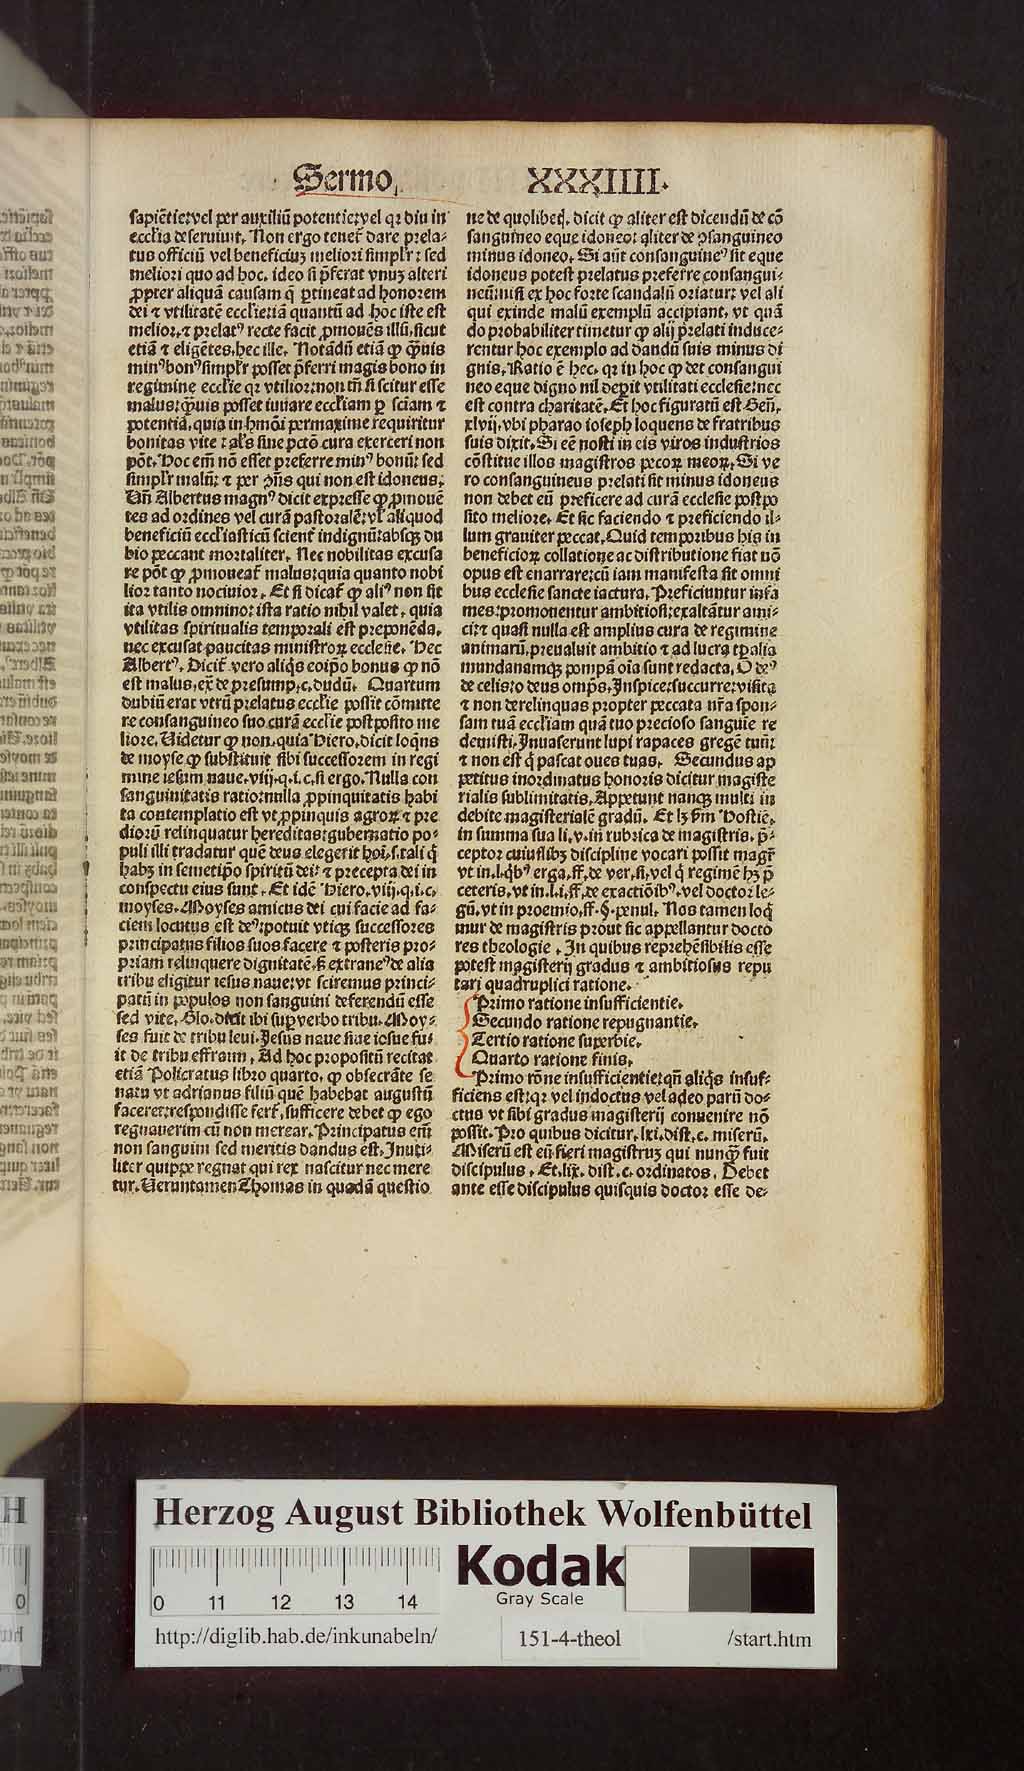 Sermo. XXXIIII.
sapiētie: vel per auxiliū potentie: vel qꝛ diu in
eccl̄ia deseruiut. Non ergo tenet᷑ dare prela-
tus officiū vel beneficiuꝫ meliori simpl'r: sed
meliori quo ad hoc. ideo si p̄ferat vnuꝫ alteri
ꝓpter aliquā causam q̄ ꝑtineat ad honorem
dei ⁊ vtilitatē eccl̄ie: iā quantū ad hoc iste est
melior. ⁊ prelatꝰ recte facit ꝓmouēs illū. sicut
etiā ⁊ eligētes. hec ille. Notādū etiā ꝙ q̄uis
minꝰ bonꝰ simpl'r posset p̄ferri magis bono in
regimine eccl̄ie qꝛ vtilior: non tn̄ si scitur esse
malus: q̄uis posset iuuare eccl̄iam ꝑ sciam ⁊
potentiā. quia in hmōi permaxime requiritur
bonitas vite: al's sine pctō cura exerceri non
pōt. Hoc em̄ nō esset preferre minꝰ bonū: sed
simpl'r malū: ⁊ per ꝯn̄s qui non est idoneus.
Un̄ Albertus magnꝰ dicit expresse ꝙ ꝓmouē
tes ad ordines vel curā pastoralē: vl' aliquod
beneficiū eccl̄iasticū scient᷑ indignū: absqꝫ du
bio peccant mortaliter. Nec nobilitas excusa
re pōt ꝙ ꝓmoueat᷑ malus: quia quanto nobi
lior tanto nociuior. Et si dicat᷑ ꝙ aliꝰ non sit
ita vtilis omnino: ista ratio nihil valet. quia
vtilitas spiritualis temporali est preponēda.
nec excusat paucitas ministroꝝ ecclesie. Hec
Albertꝰ. Dicit᷑ vero aliq̄s eoip̄o bonus ꝙ nō
est malus. ex̄ de presump. c. dudū. Quartum
dubiū erat vtrū prelatus eccl̄ie possit cōmitte
re consanguineo suo curā eccl̄ie postposito me
liore. Uidetur ꝙ non. quia Hiero. dicit loq̄ns
de moyse ꝙ substituit sibi successorem in regi
mine iesum naue. viij. q. i. c. si ergo. Nulla con
sanguinitatis ratio: nulla ꝓpinquitatis habi
ta contemplatio est vt ꝓpinquis agroꝝ ⁊ pre
dioꝝ relinquatur hereditas: gubernatio po-
puli illi tradatur quē deus elegerit hoi. s. tali q̄
habꝫ in semetip̄o spiritū dei: ⁊ precepta dei in
conspectu eius sunt. Et idē Hiero. viij. q. i. c.
moyses. Moyses amicus dei cui facie ad fa-
ciem locutus est deꝰ: potuit vtiqꝫ successores
principatus filios suos facere ⁊ posteris pro-
priam relinquere dignitatē. s̄ extraneꝰ de alia
tribu eligitur iesus naue: vt sciremus princi-
patū in populos non sanguini deferendū esse
sed vite. Glo. dicit ibi super verbo tribu. Moy-
ses fuit de tribu leui. Jesus naue siue iosue fu-
it de tribu effraim. Ad hoc propositū recitat
etiā Policratus libro quarto. ꝙ obsecrāte se
natu vt adrianus filiū quē habebat augustū
faceret: respondisse fert᷑. sufficere debet ꝙ ego
regnauerim cū non merear. Principatus em̄
non sanguini sed meritis dandus est. Inuti-
liter quippe regnat qui rex nascitur nec mere
tur. Ueruntamen Thomas in quadā questio
ne de quolibet. dicit ꝙ aliter est dicendū de cō
sanguineo eque idoneo: aliter de ꝯsanguineo
minus idoneo. Si aūt consanguineꝰ sit eque
idoneus potest prelatus preferre consangui-
neū: nisi ex hoc forte scandalū oriatur: vel ali
qui exinde malū exemplū accipiant. vt quā
do probabiliter timetur ꝙ alij prelati induce-
rentur hoc exemplo ad dandū suis minus di
gnis. Ratio ē hec. qꝛ in hoc ꝙ det consangui
neo eque digno nil deperit vtilitati ecclesie: nec
est contra charitatē. Et hoc figuratū est Gen̄.
xlvij. vbi pharao ioseph loquens de fratribus
suis dixit. Si eē nosti in eis viros industrios
cōstitue illos magistros pecoꝝ meoꝝ. Si ve
ro consanguineus prelati sit minus idoneus
non debet eū preficere ad curā ecclesie postpo
sito meliore. Et sic faciendo ⁊ preficiendo il-
lum grauiter peccat. Quid temporibus his in
beneficioꝝ collatione ac distributione fiat nō
opus est enarrare: cū iam manifesta sit omni
bus ecclesie sancte iactura. Preficiuntur infa
mes: promouentur ambitiosi: exaltātur ami-
ci: ⁊ quasi nulla est amplius cura de regimine
animarū. preualuit ambitio ⁊ ad lucra tp̄alia
mundanamqꝫ pompā oīa sunt redacta. O deꝰ
de celis: o deus omp̄s. Inspice: succurre: visita
⁊ non derelinquas propter peccata nr̄a spon-
sam tuā eccl̄iam quā tuo precioso sanguīe re
demisti. Inuaserunt lupi rapaces gregē tuū:
⁊ non est q̄ pascat oues tuas. Secundus ap
petitus inordinatus honoris dicitur magiste
rialis sublimitatis. Appetunt nanqꝫ multi in
debite magisterialē gradū. Et lꝫ fm̄ Hostiē.
in summa sua li. v. in rubrica de magistris. p̄-
ceptor cuiuslibꝫ discipline vocari possit magr̄
vt in. l. q̄bꝰ erga. ff. de ver. si. vel q̄ regimē hꝫ p̄
ceteris. vt in. l. i. ff. de exactiōibꝰ. vel doctor le-
gū. vt in proemio. ff. §. penul. Nos tamen loq̄
mur de magistris prout sic appellantur docto
res theologie. In quibus reprehēsibilis esse
potest magisterij gradus ⁊ ambitiosus repu
tari quadruplici ratione.
Primo ratione insufficientie.
Secundo ratione repugnantie.
Tertio ratione superbie.
Quarto ratione finis.
Primo rōne insufficientie: qn̄ aliq̄s insuf-
ficiens est: qꝛ vel indoctus vel adeo parū do-
ctus vt sibi gradus magisterij conuenire nō
possit. Pro quibus dicitur. lxi. dist. c. miserū.
Miserū est eū fieri magistruꝫ qui nunq̄ fuit
discipulus. Et. lix. dist. c. ordinatos. Debet
ante esse discipulus quisquis doctor esse de-
Herzog August Bibliothek Wolfenbüttel
Kodak
Gray Scale
0 11 12 13 14
http://diglib.hab.de/inkunabeln/ 151-4-theol /start.htm